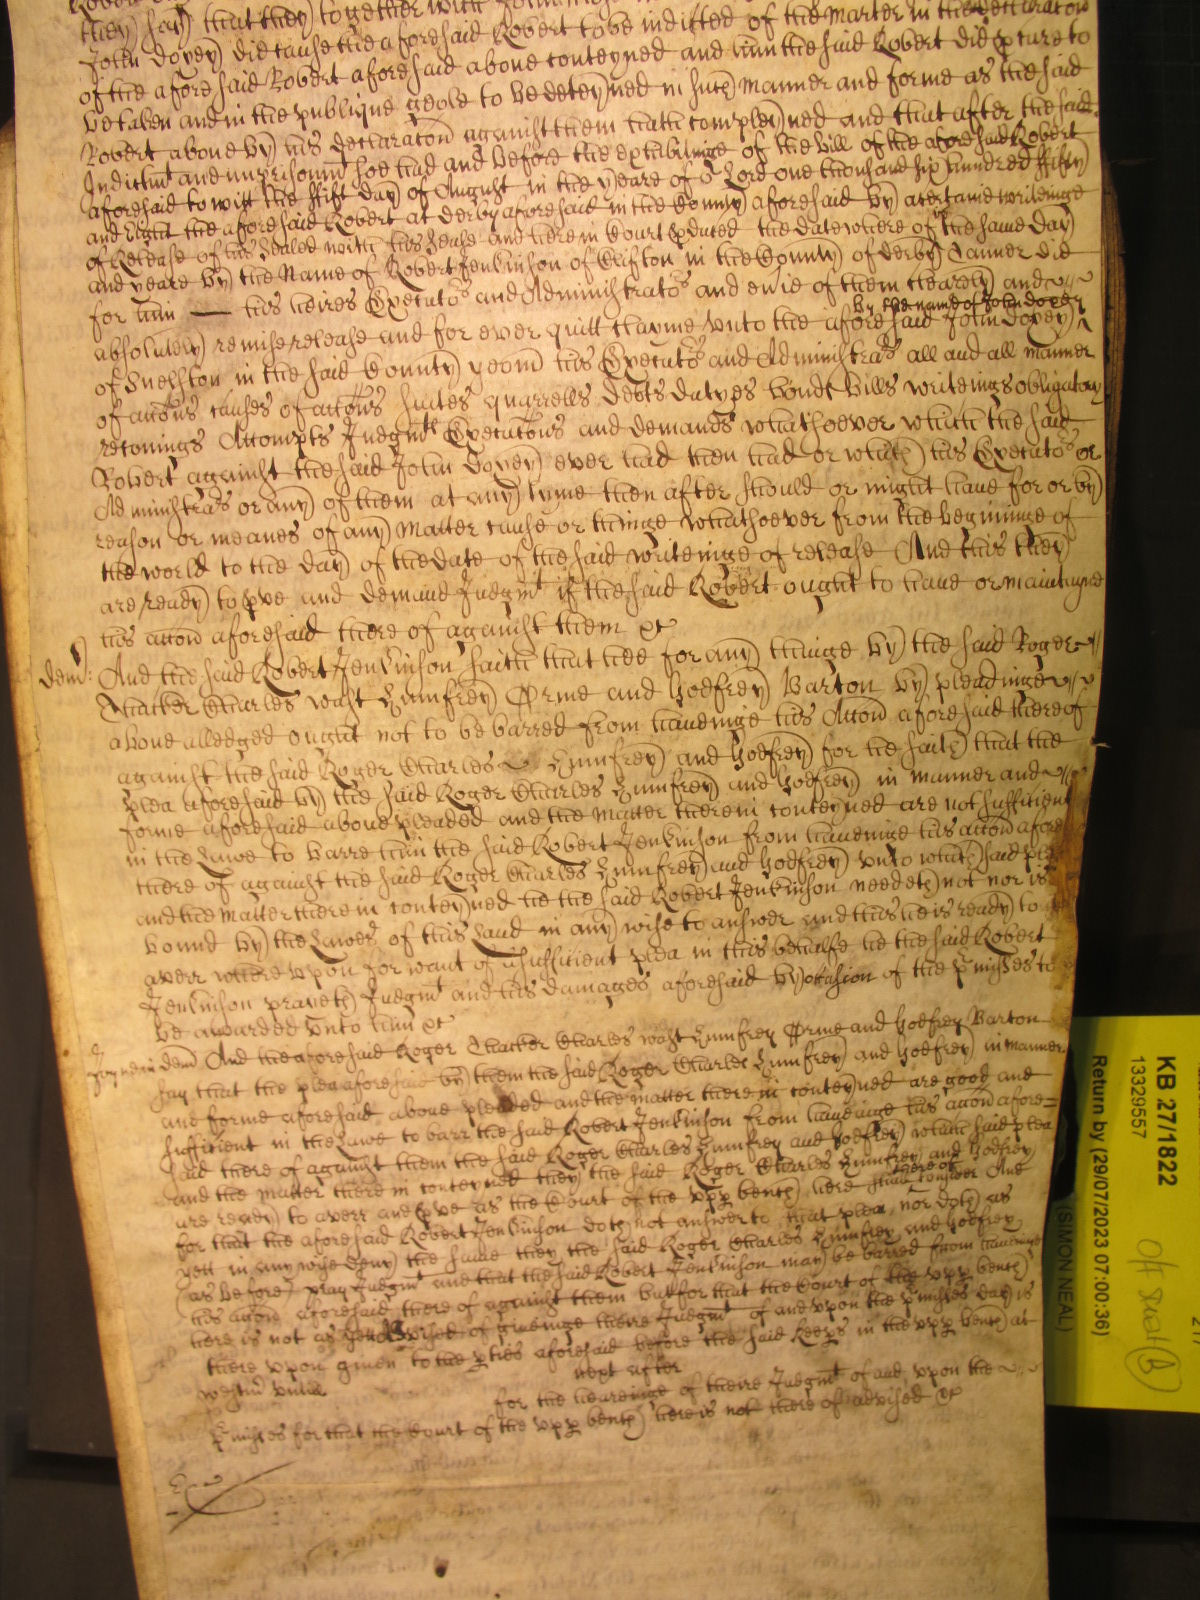 they say that they together with
John Dovey did cause the aforesaid Robert to be indicted of the matter in the declaracon
of the aforesaid Robert aforesaid above conteyned and him the said Robert did pcure to
be taken and in the publique goale to be deteyned in such manner and forme as the said
Robert above by his declaracon against them hath compleyned and that after the said
Indictmt and imprisonmt soe had and before the exhibitinge of the bill of the aforesaid Robert
aforesaid to witt the ffift day of August in the yeare of or Lord one thousand six hundred ffifty
and eight the aforesaid Robert at derby aforesaid in the County aforesaid by a certaine writeinge
of Release of his Sealed with his Seale and here in Court pduced the date whereof is the same day
and yeare by the Name of Robert Jenkinson of Clifton in the County of derby Tanner did
for him — his heires Executors and Administrators and evie of them clearely and
absolutely remise release and for ever quitt clayme unto the aforesaid John Dovey by the name of John Dovey
of Snelston in the said County yeom his Executors and Administras all and all manner
of accons causes of accons suites quarrells debts dutyes bonds bills writeings obligatory
reconings Attempts Judgmts Execucons and demands whatsoever which the said
Robert against the said John Dovey ever had then had or which his Executors or
Administras or any of them at any tyme then after should or might have for or by
reason or meanes of any matter cause or thinge whatsoever from the beginninge of
the world to the day of the date of the said writeinge of release And this they
are ready to pve and demand Judgmt if the said Robert ought to have or maintayne
his accon aforesaid thereof against them &c
dem: And the said Robert Jenkinson saith that hee for any thinge by the said Roger
Thacker Charles wast Humfrey Orme and Godfrey Barton by pleadinge
above alledged ought not to be barred from haveinge his Accon aforesaid thereof
against the said Roger Charles Humfrey and Godfrey for he saith that the
plea aforesaid by the said Roger Charles Humfrey and Godfrey in manner and
forme aforesaid above pleaded and the matter therein conteyned are not sufficient
in the Lawe to barre him the said Robert Jenkinson from haveinge his accon afores
there of against the said Roger Charles Humfrey and Godfrey unto which said plea
and the matter therein conteyned he the said Robert Jenkinson needeth not nor is
bound by the Lawes of this Land in any wise to answer and this he is ready to
averr whereupon for want of a sufficient plea in this behalfe he the said Robert
Jenkinson prayeth Judgmt and his damages aforesaid by occasion of the pmisses to
be awarded unto him &c
Joynder in dem And the aforesaid Roger Thacker Charles wast Humfrey Orme and Godfrey Barton
say that the plea aforesaid by them the said Roger Charles Humfrey and Godfrey in manner
and forme aforesaid above pleaded and the matter therein conteyned are good and
sufficient in the Lawe to barr the said Robert Jenkinson from haveinge his accon afore=
said there of against them the said Roger Charles Humfrey and Godfrey which said plea
and the matter there in conteyned they the said Roger Charles Humfrey and Godfrey
are ready to averr and pve as the Court of the upp bench here shall thereof consider And
for that the aforesaid Robert Jenkinson doth not answer to that plea nor doth as
yett in any wise deny the same they the said Roger Charles Humfrey and Godfrey
(as before) pray Judgmt and that the said Robert Jenkinson may be barred from haveinge
his accon aforesaid there of against them but for that the Court of the upp bench
here is not as yet advised of giveinge theire Judgmt of and upon the pmisses day is
there upon given to the pties aforesaid before the said Keeps in the upp bench at
westm untill next after
for the heareinge of theire Judgmt of and upon the
pmisses for that the Court of the upp bench here is not there of advised &c
KB 27/1822
13329557
Return by (29/07/2023 07:00:36)
(SIMON NEAL)